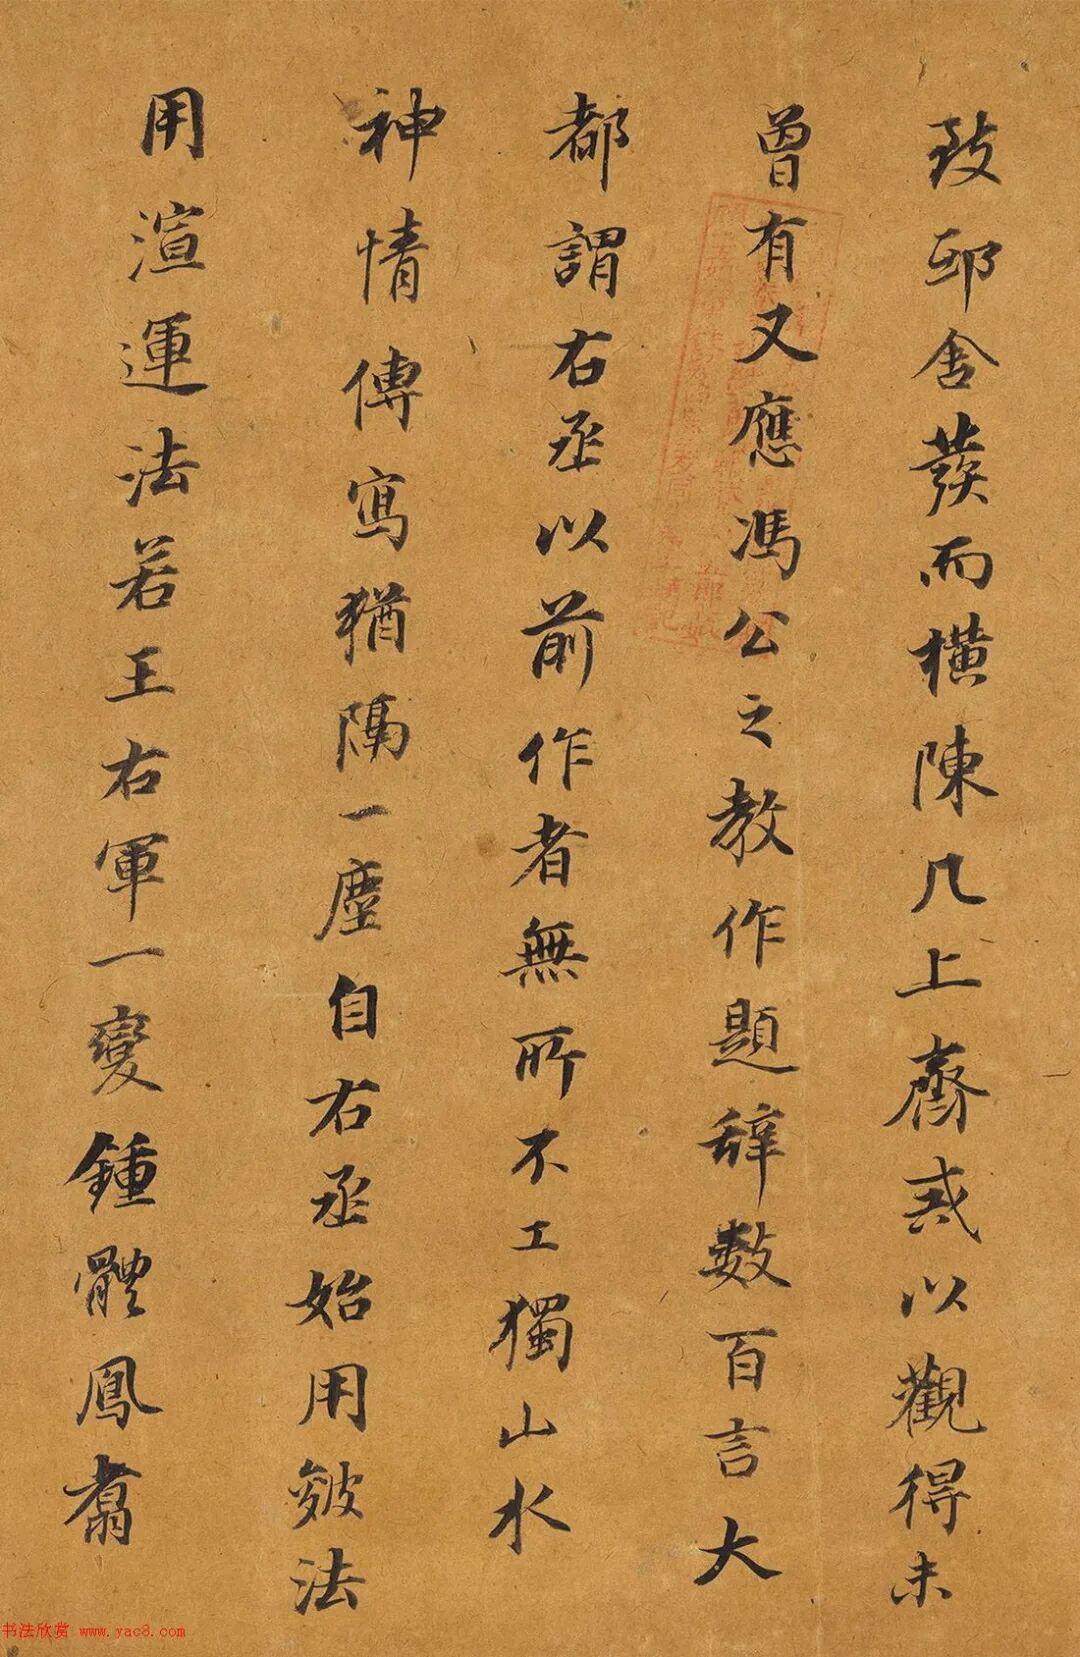 致邸舍發而橫陳几上齋戒以觀得未
曾有又應馮公之教作題辭數百言大
都謂右丞以前作者無所不工獨山水
神情傳寫猶隔一塵自右丞始用皴法
用渲運法若王右軍一變鍾體鳳翥
书法欣赏 www.yac8.com